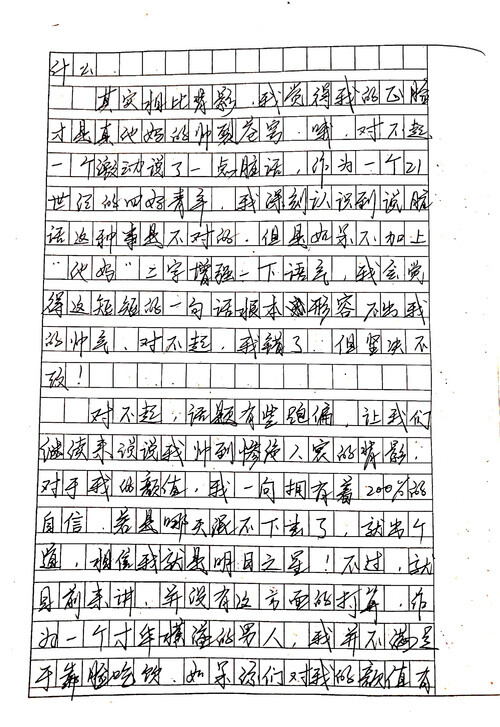 什么
其实相比背影，我觉得我的正脸
才是真他妈的帅到苍穹。哦，对不起
一个激动说了一点脏话，作为一个21
世纪的四好青年，我深刻认识到说脏
话这种事是不对的。但是如果不加上
“他妈”二字增强一下语气，我会觉
得这短短的一句话根本形容不出我
的帅气。对不起，我错了，但坚决不
改！
对不起，话题有些跑偏，让我们
继续来说说我帅到惨绝人寰的背影，
对于我的颜值，我一向拥有着200%的
自信，若是哪天混不下去了，就出个
道，相信我就是明日之星！不过，就
目前来讲，并没有这方面的打算，作
为一个才华横溢的男人，我并不满足
于靠脸吃饭，如果你们对我的颜值有